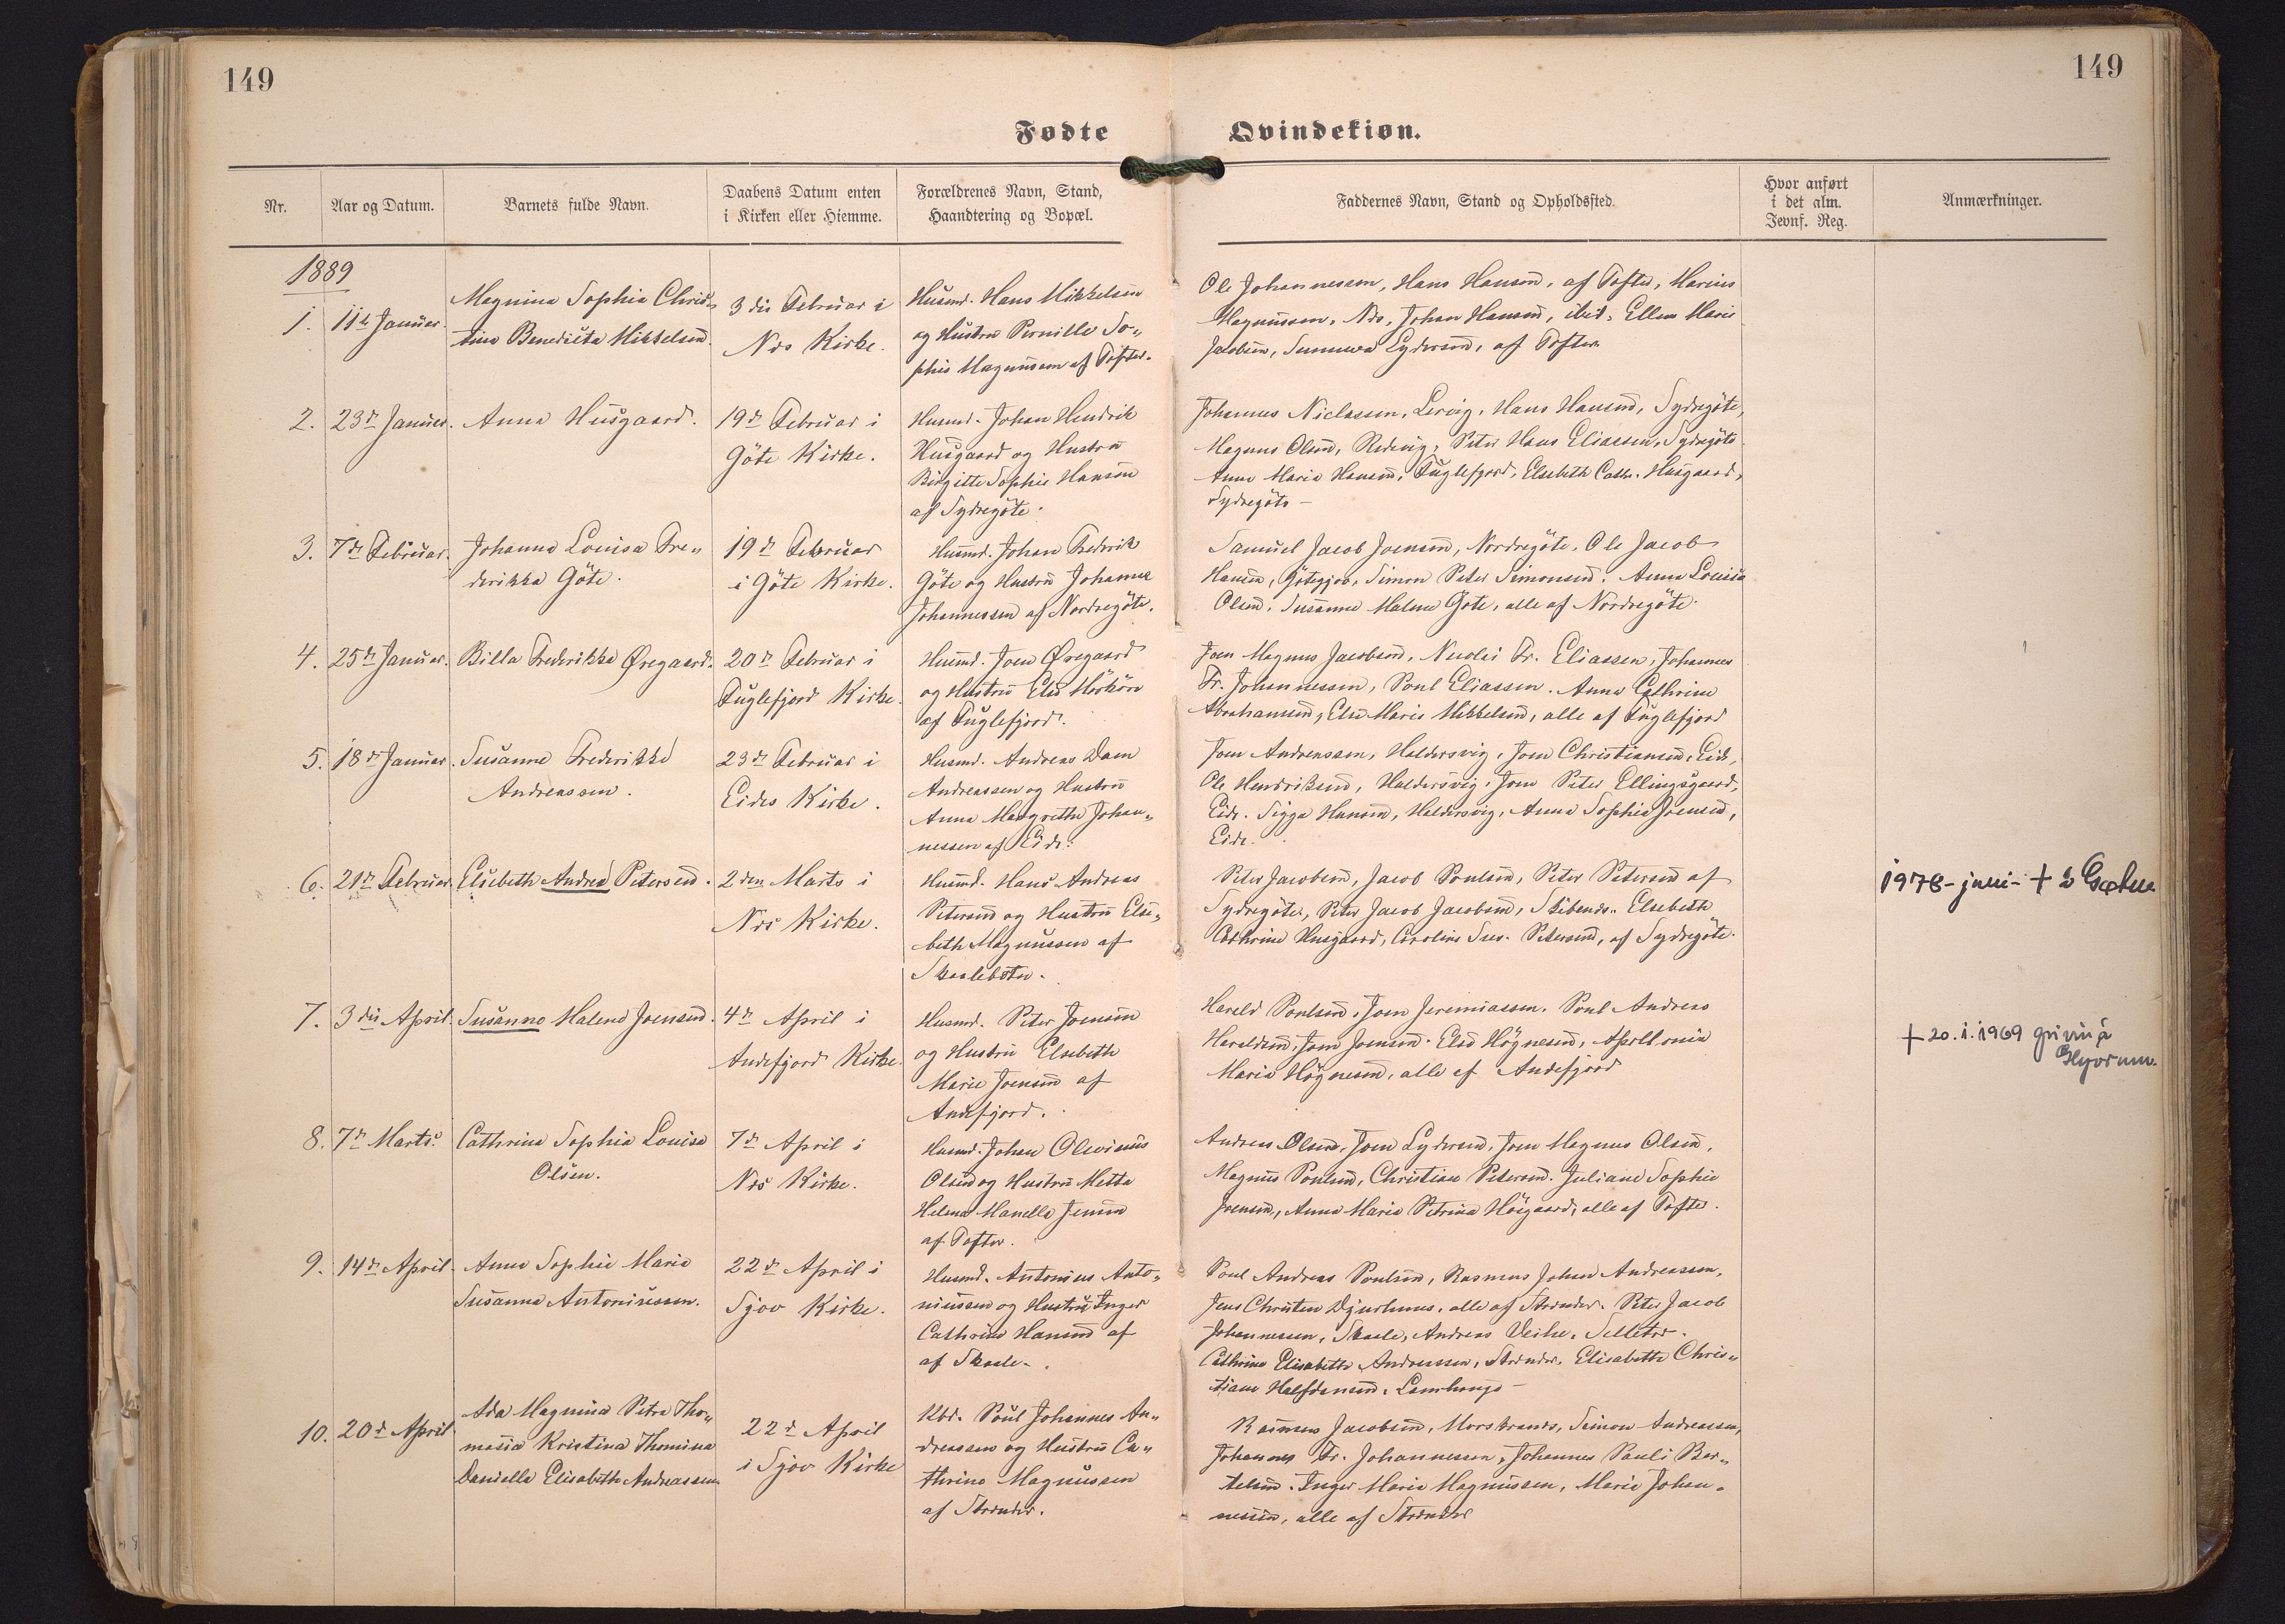 149
149
Fødte
Qvindekiøn.
Nr.
Aar og Datum.
Barnets fulde Navn.
Daabens Datum enten
i Kirken eller Hiemme.
Forældrenes Navn, Stand,
Haandtering og Bopæl.
Faddernes Navn, Stand og Opholdsfted.
Hvor anført
i det alm.
Jevnf. Reg.
Anmærkninger.
1889
1.
11te Januar.
Magnina Sophie Chris-
tine Benedicta Mikkelsen.
3die Februar i
Nes Kirke.
Husmd. Hans Mikkelsen
og Hustru Pernille So-
phie Magnussen af Tofter.
Ole Johannesen, Hans Hansen, af Tofte, Marius
Magnussen, Nes, Johan Hansen, ibid. Ellen Marie
Jacobsen, Sunneva Lydersen, af Tofter
2.
23de Januar.
Anna Husgaard.
19de Februar i
Göte Kirke.
Husmd. Johan Hendrik
Husgaard og Hustru
Birgitte Sophie Hansen
af Sydregöte.
Johannes Niclassen, Lervig, Hans Hansen, Sydregöte,
Magnus Olsen, Redevig, Peter Hans Eliassen, Sydregöte
Anne Maria Hansen, Fuglefjord, Elsebeth Cath. Husgaard,
Sydregöte -
3.
7de Februar.
Johanne Louisa Fre-
derikka Göte.
19de Februar
i Göte Kirke.
Husmd. Johan Frederik
Göte og Hustru Johanne
Johannessen af Nordregöte.
Samuel Jacob Joensen, Nordregöte, Ole Jacob
Hansen, Götegjov, Simon Peter Simonsen. Anna Louisa
Olsen, Susanne Malene Göte, alle af Nordregöte.
4.
25de Januar.
Billa Frederikke Øregaard.
20de Februar i
Fuglefjord Kirke.
Husmd. Joen Øregaard
og Hustru Else Mörköre
af Fuglefjord.
Joen Magnus Jacobsen, Nicolai Fr. Eliassen, Johannes
Fr. Johannessen, Poul Eliassen. Anna Cathrine
Abrahamsen, Else Marie Mikkelsen, alle af Fuglefjord
5.
18de Januar.
Susanne Frederikke
Andreassen.
23de Februar i
Eides Kirke.
Husmd. Andreas Dam
Andreassen og Hustru
Anna Margrethe Johan-
nessen af Eide.
Joen Andreassen, Haldersvig, Joen Christiansen, Eide,
Ole Hendriksen, Haldersvig, Joen Peter Ellingsgaard,
Eide. Sigga Hansen, Haldersvig, Anna Sophie Joensen,
Eide.
6.
21de Februar
Elsebeth Andrea Petersen.
2den Marts i
Nes Kirke.
Husmd. Hans Andreas
Petersen og Hustru Else-
beth Magnussen af
Skaalebotn.
Peter Jacobsen, Jacob Poulsen, Peter Petersen af
Sydregöte, Peter Jacob Jacobsen, Skibenes. Elsebeth
Cathrine Husgaard, Caroline Sus. Petersen, af Sydregöte.
1978 - juni - +
7.
3die April.
Susanne Malene Joensen.
4de April i
Andefjord Kirke.
Husmd. Peter Joensen
og Hustru Elsebeth
Marie Joensen af
Andefjord.
Harald Poulsen, Joen Jeremiassen. Poul Andreas
Haraldsen, Joen Joensen. Else Högnesen, Apollonia
Maria Högnesen, alle af Andefjord
+ 20.1.1969
8.
7de Marts.
Cathrina Sophia Louisa
Olsen.
7de April i
Nes Kirke.
Husmd. Johan Olevinus
Olsen og Hustru Metta
Helena Manella Jensen
af Tofter.
Andreas Olsen, Joen Lydersen, Joen Magnus Olsen,
Magnus Poulsen, Christian Petersen. Juliane Sophie
Joensen, Anna Maria Petrina Höigaard, alle af Tofte.
9.
14de April.
Anna Sophie Marie
Susanna Antoniussen.
22de April i
Sjov Kirke.
Husmd. Antonius Anto-
niussen og Hustru Inger
Cathrine Hansen af
af Skaale.
Poul Andreas Poulsen, Rasmus Johan Andreassen,
Jens Christen Djurhuus, alle af Strender. Peter Jacob
Johannessen, Skaale, Andreas Veihe, Selletrö.
Cathrine Elisabeth Andreassen, Strender. Elisabeth Chris-
tiane Halfdansen, Lamhauge -
10.
20de April
Ada Magnina Petra Tho-
masia Kristina Thomina
Daniella Elisabeth Andreassen
22de April
i Sjov Kirke
Kbd. Poul Johannes An-
dreassen og Hustru Ca-
thrine Magnussen
af Strender.
Rasmus Jacobsen, Morskranes, Simon Andreassen,
Johannes Fr. Johannessen, Johannes Pauli Ber-
telsen. Inger Marie Magnussen, Marie Johan-
nessen, alle af Strender